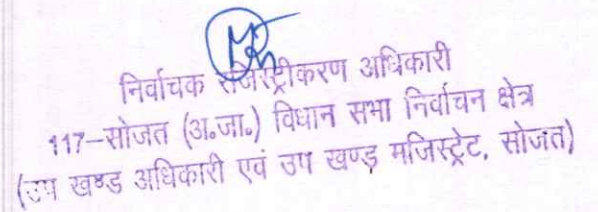 निर्वाचक रजिस्ट्रीकरण अधिकारी
117–सोजत (अ.जा.) विधान सभा निर्वाचन क्षेत्र
(उप खण्ड अधिकारी एवं उप खण्ड़ मजिस्ट्रेट, सोजत)